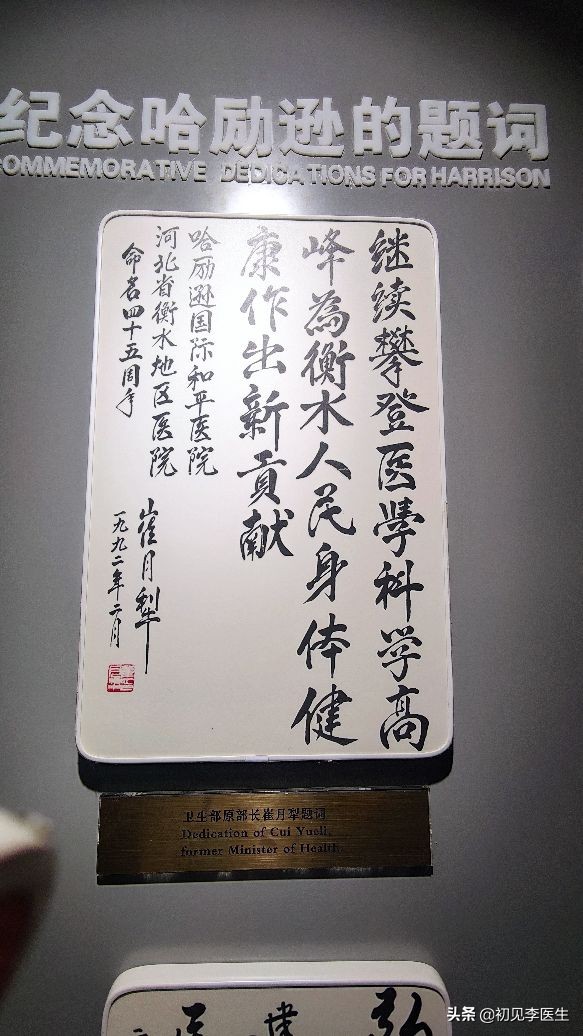 纪念哈励逊的题词
COMMEMORATIVE DEDICATIONS FOR HARRISON
继续攀登医学科学高
峰为衡水人民身体健
康作出新贡献
哈励逊国际和平医院
河北省衡水地区医院
命名四十五周年
崔月犁
一九九二年二月
卫生部原部长崔月犁题词
Dedication of Cui Yueli,
former Minister of Health.
弘
头条 @初见李医生